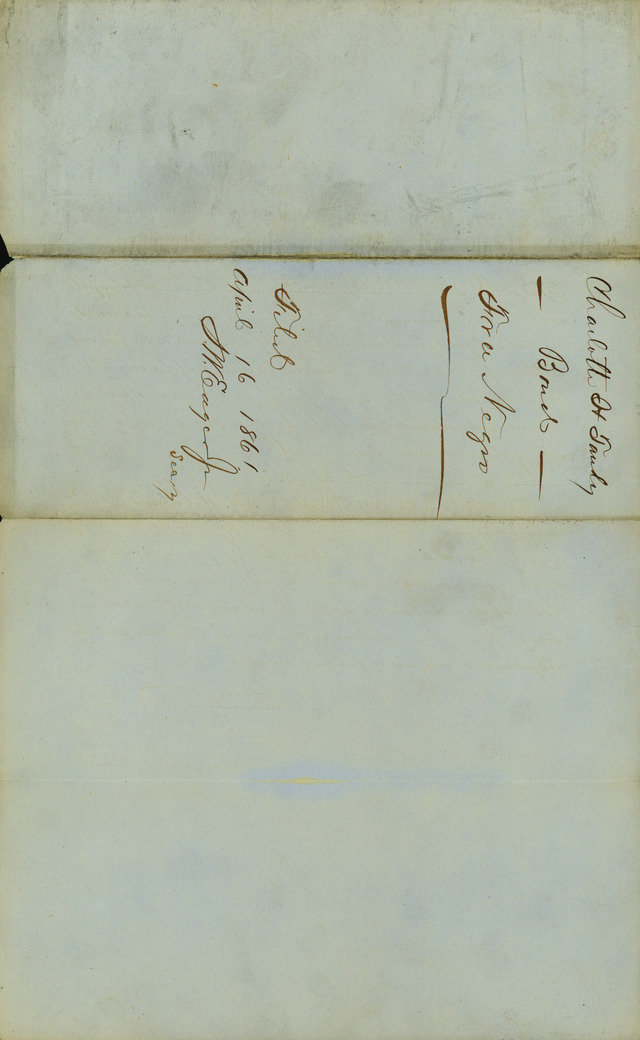 Charlotte H
— Bond —
Free Negro
Filed
April 16 1861
J. M. Eager Jr
Secy